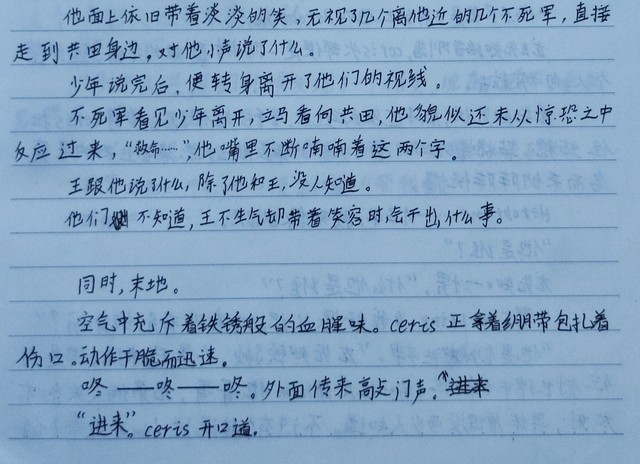 他面上依旧带着淡淡的笑，无视了几个离他近的几个不死军，直接
走到共田身边，对他小声说了什么。
少年说完后，便转身离开了他们的视线。
不死军看见少年离开，立马看向共田，他貌似还未从惊恐之中
反应过来，“救命……”，他嘴里不断喃喃着这两个字。
王跟他说了什么，除了他和王，没人知道。
他们 不知道，王不生气却带着笑容时，会干出，什么事。
同时，末地。
空气中充斥着铁锈般的血腥味。ceris正拿着绷带包扎着
伤口。动作干脆而迅速。
咚——咚——咚。外面传来敲门声。“进来
“进来”。ceris开口道。